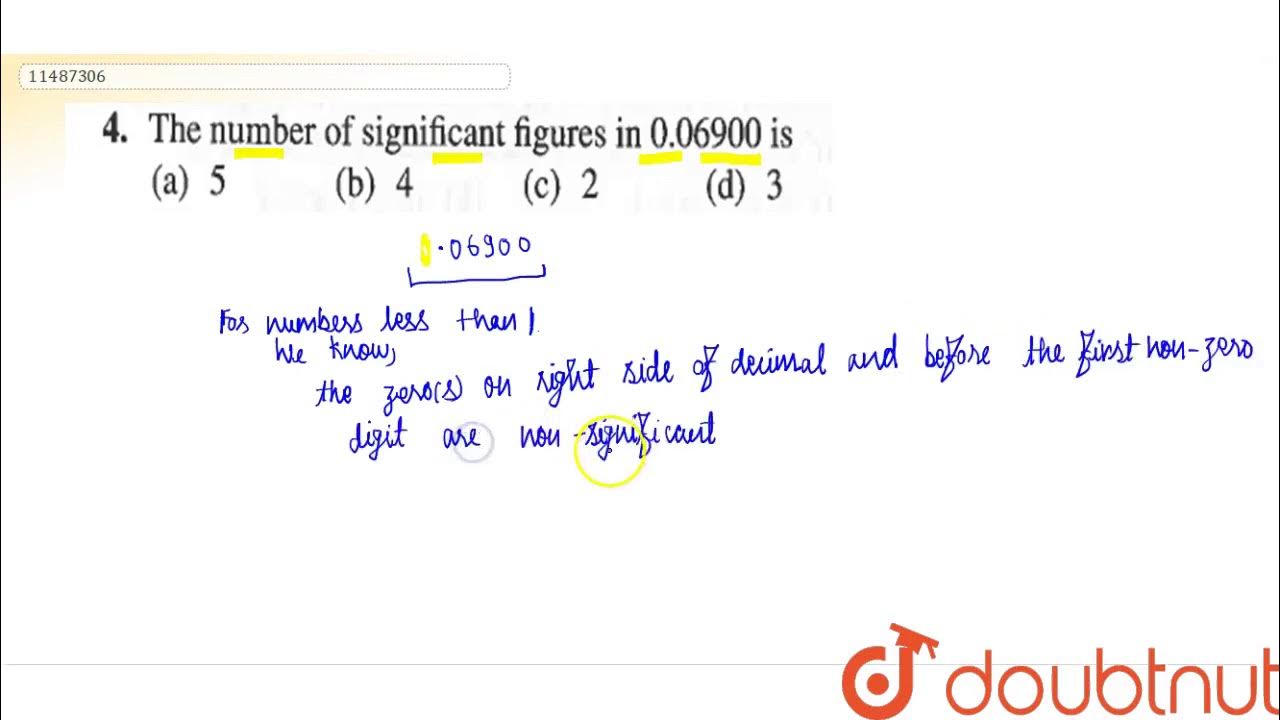 11487306
4. The number of significant figures in 0.06900 is
(a) 5 (b) 4 (c) 2 (d) 3
0.06900
For numbers less than 1.
We know,
the zero(s) on right side of decimal and before the first non-zero
digit are non-significant
doubtnut